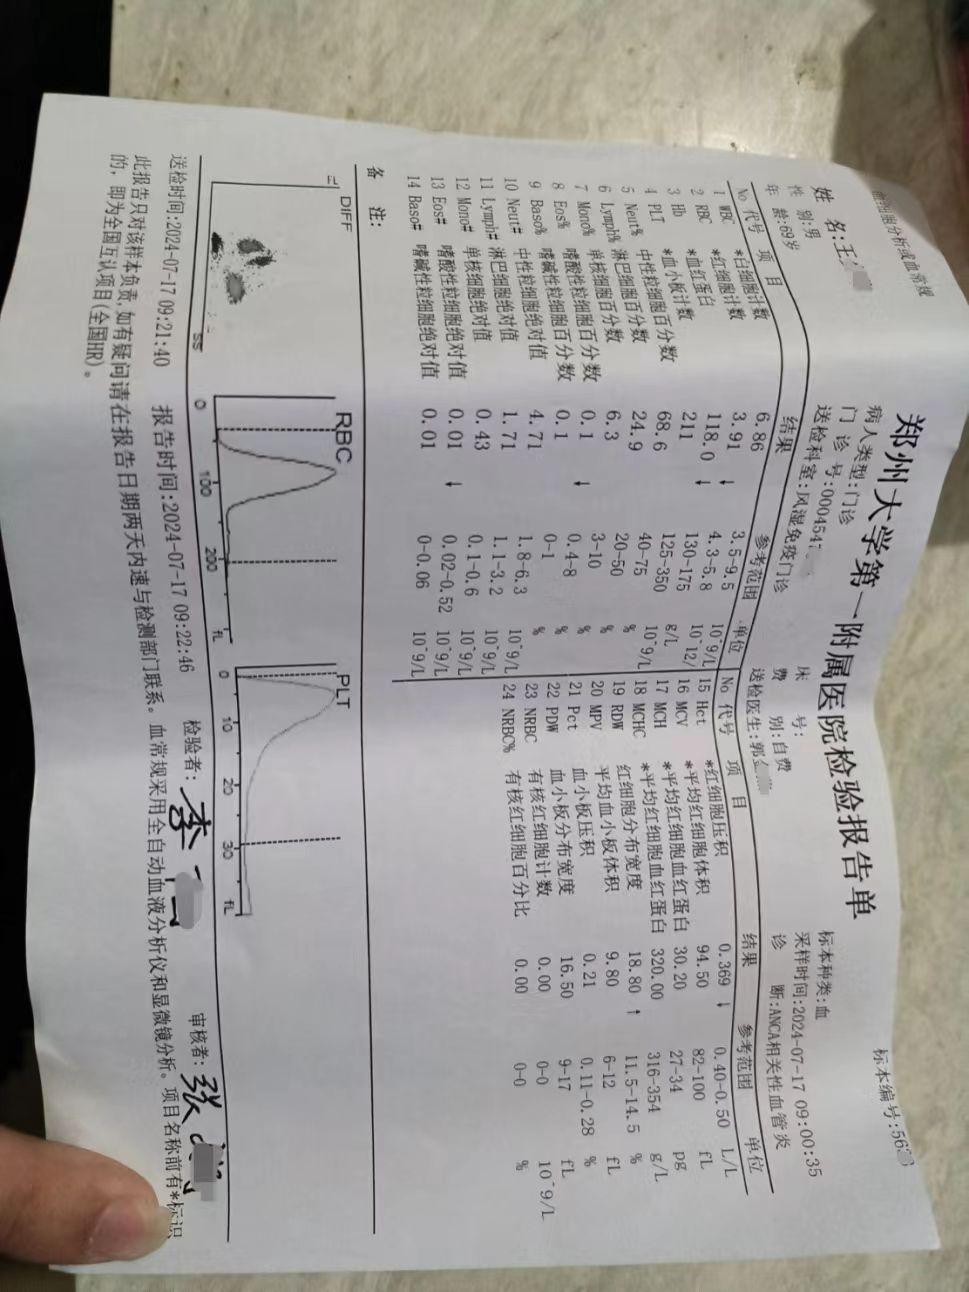 郑州大学第一附属医院检验报告单
血细胞分析或血常规
标本编号:56
姓 名:王
病人类型:门诊
床 号:
标本种类:血
性 别:男
门 诊 号:0004547
费 别:自费
采样时间:2024-07-17 09:00:35
年 龄:69岁
送检科室:风湿免疫门诊
送检医生:郭
诊 断:ANCA相关性血管炎
No 代号 项 目 结果 参考范围 单位
1 WBC *白细胞计数 6.86 3.5-9.5 10^9/L
2 RBC *红细胞计数 3.91 ↓ 4.3-5.8 10^12/
3 Hb *血红蛋白 118.0 ↓ 130-175 g/L
4 PLT *血小板计数 211 125-350 10^9/L
5 Neut% 中性粒细胞百分数 68.6 40-75 %
6 Lymph% 淋巴细胞百分数 24.9 20-50 %
7 Mono% 单核细胞百分数 6.3 3-10 %
8 Eos% 嗜酸性粒细胞百分数 0.1 ↓ 0.4-8 %
9 Baso% 嗜碱性粒细胞百分数 0.1 0-1 %
10 Neut# 中性粒细胞绝对值 4.71 1.8-6.3 10^9/L
11 Lymph# 淋巴细胞绝对值 1.71 1.1-3.2 10^9/L
12 Mono# 单核细胞绝对值 0.43 0.1-0.6 10^9/L
13 Eos# 嗜酸性粒细胞绝对值 0.01 ↓ 0.02-0.52 10^9/L
14 Baso# 嗜碱性粒细胞绝对值 0.01 0-0.06 10^9/L
No 代号 项 目 结果 参考范围 单位
15 Hct *红细胞压积 0.369 ↓ 0.40-0.50 L/L
16 MCV *平均红细胞体积 94.50 82-100 fL
17 MCH *平均红细胞血红蛋白 30.20 27-34 pg
18 MCHC *平均红细胞血红蛋白 320.00 316-354 g/L
19 RDW 红细胞分布宽度 18.80 ↑ 11.5-14.5 %
20 MPV 平均血小板体积 9.80 6-12 fL
21 Pct 血小板压积 0.21 0.11-0.28 %
22 PDW 血小板分布宽度 16.50 9-17 fL
23 NRBC 有核红细胞计数 0.00 0-0 10^9/L
24 NRBC% 有核红细胞百分比 0.00 0-0 %
备 注:
DIFF
SS
RBC
0 100 200 fL
PLT
0 10 20 30 fL
送检时间:2024-07-17 09:21:40 报告时间:2024-07-17 09:22:46 检验者: 李 审核者: 张
此报告只对该样本负责,如有疑问请在报告日期两天内速与检测部门联系。血常规采用全自动血液分析仪和显微镜分析。项目名称前有*标识
的,即为全国互认项目(全国HR)。